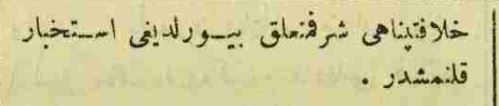 خلافتپناهی شرفمتعلق بیورلدیغی استخبار
قلنمشدر .